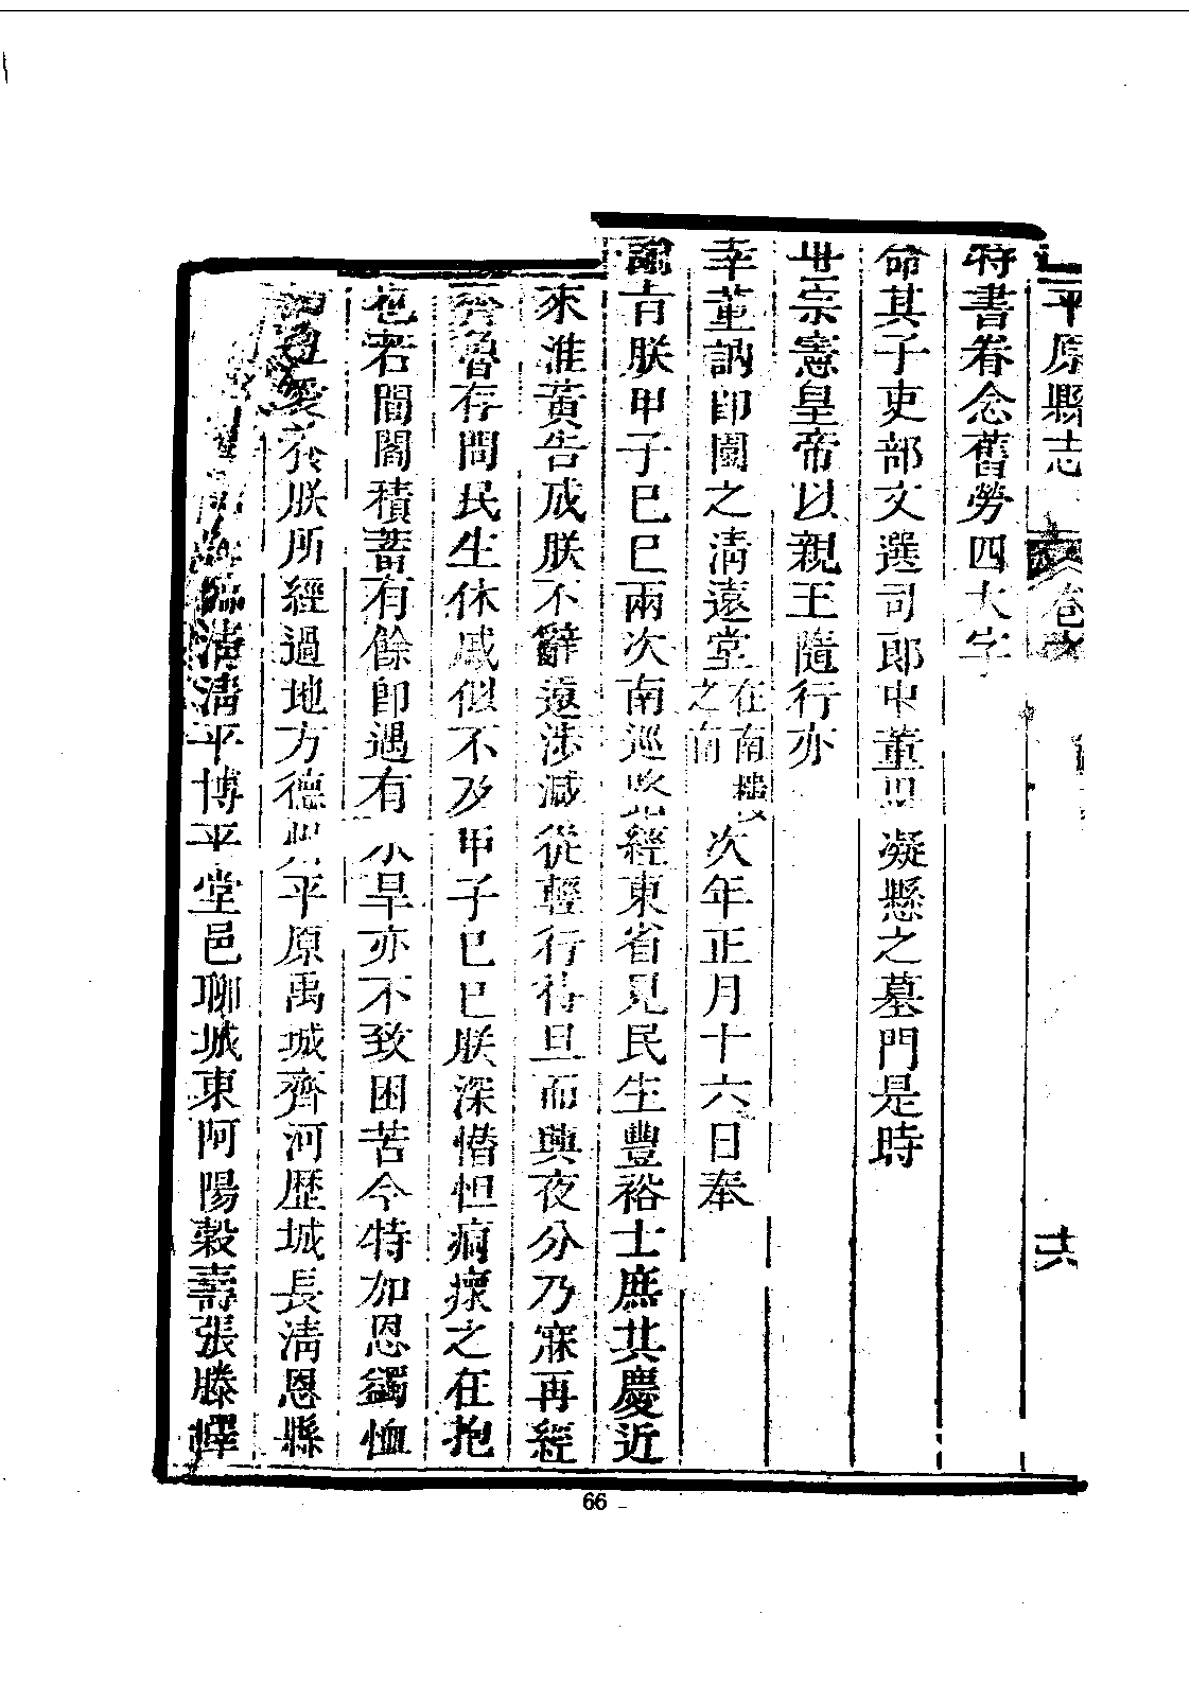 平原縣志
卷
十六
特書眷念舊勞四大字
命其子吏部文選司郎中董思凝懸之墓門是時
世宗憲皇帝以親王隨行亦
幸董訥卽園之淸遠堂在南樓之南次年正月十六日奉
諭旨朕甲子己巳兩次南巡經東省見民生豐裕士庶共慶近
來淮黃告成朕不辭遠涉減從輕行待旦而興夜分乃寐再經
齊魯存問民生休戚似不及甲子己巳朕深惜怛痌瘝之在抱
也若閭閻積蓄有餘卽遇有水旱亦不致困苦今特加恩蠲恤
朕所經過地方德州平原禹城齊河歷城長淸恩縣
臨淸淸平博平堂邑聊城東阿陽穀壽張滕嶧
66